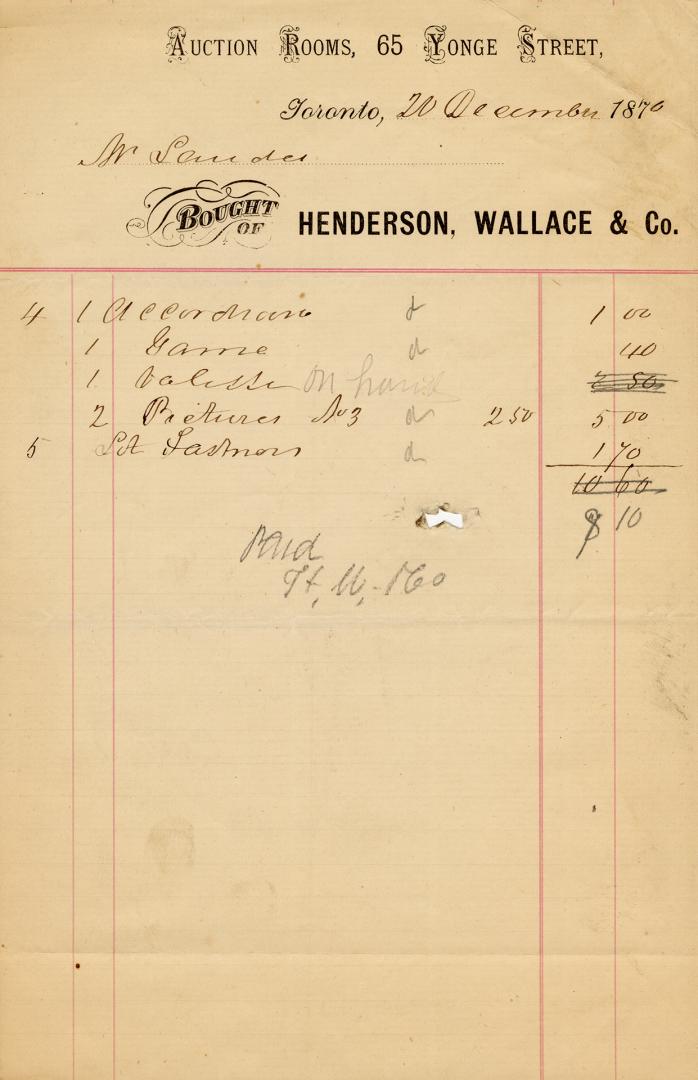 AUCTION ROOMS, 65 YONGE STREET,
Toronto, 20 December 1870
Mr Lauder
BOUGHT OF HENDERSON, WALLACE & Co.
4 1 Accordian d 1 00
1 Game d 40
1 Valisse on hand 2 50
2 Pictures No3 d 2 50 5 00
5 Lot d 1 70
10 60
$8 10
Paid
H, W, & Co